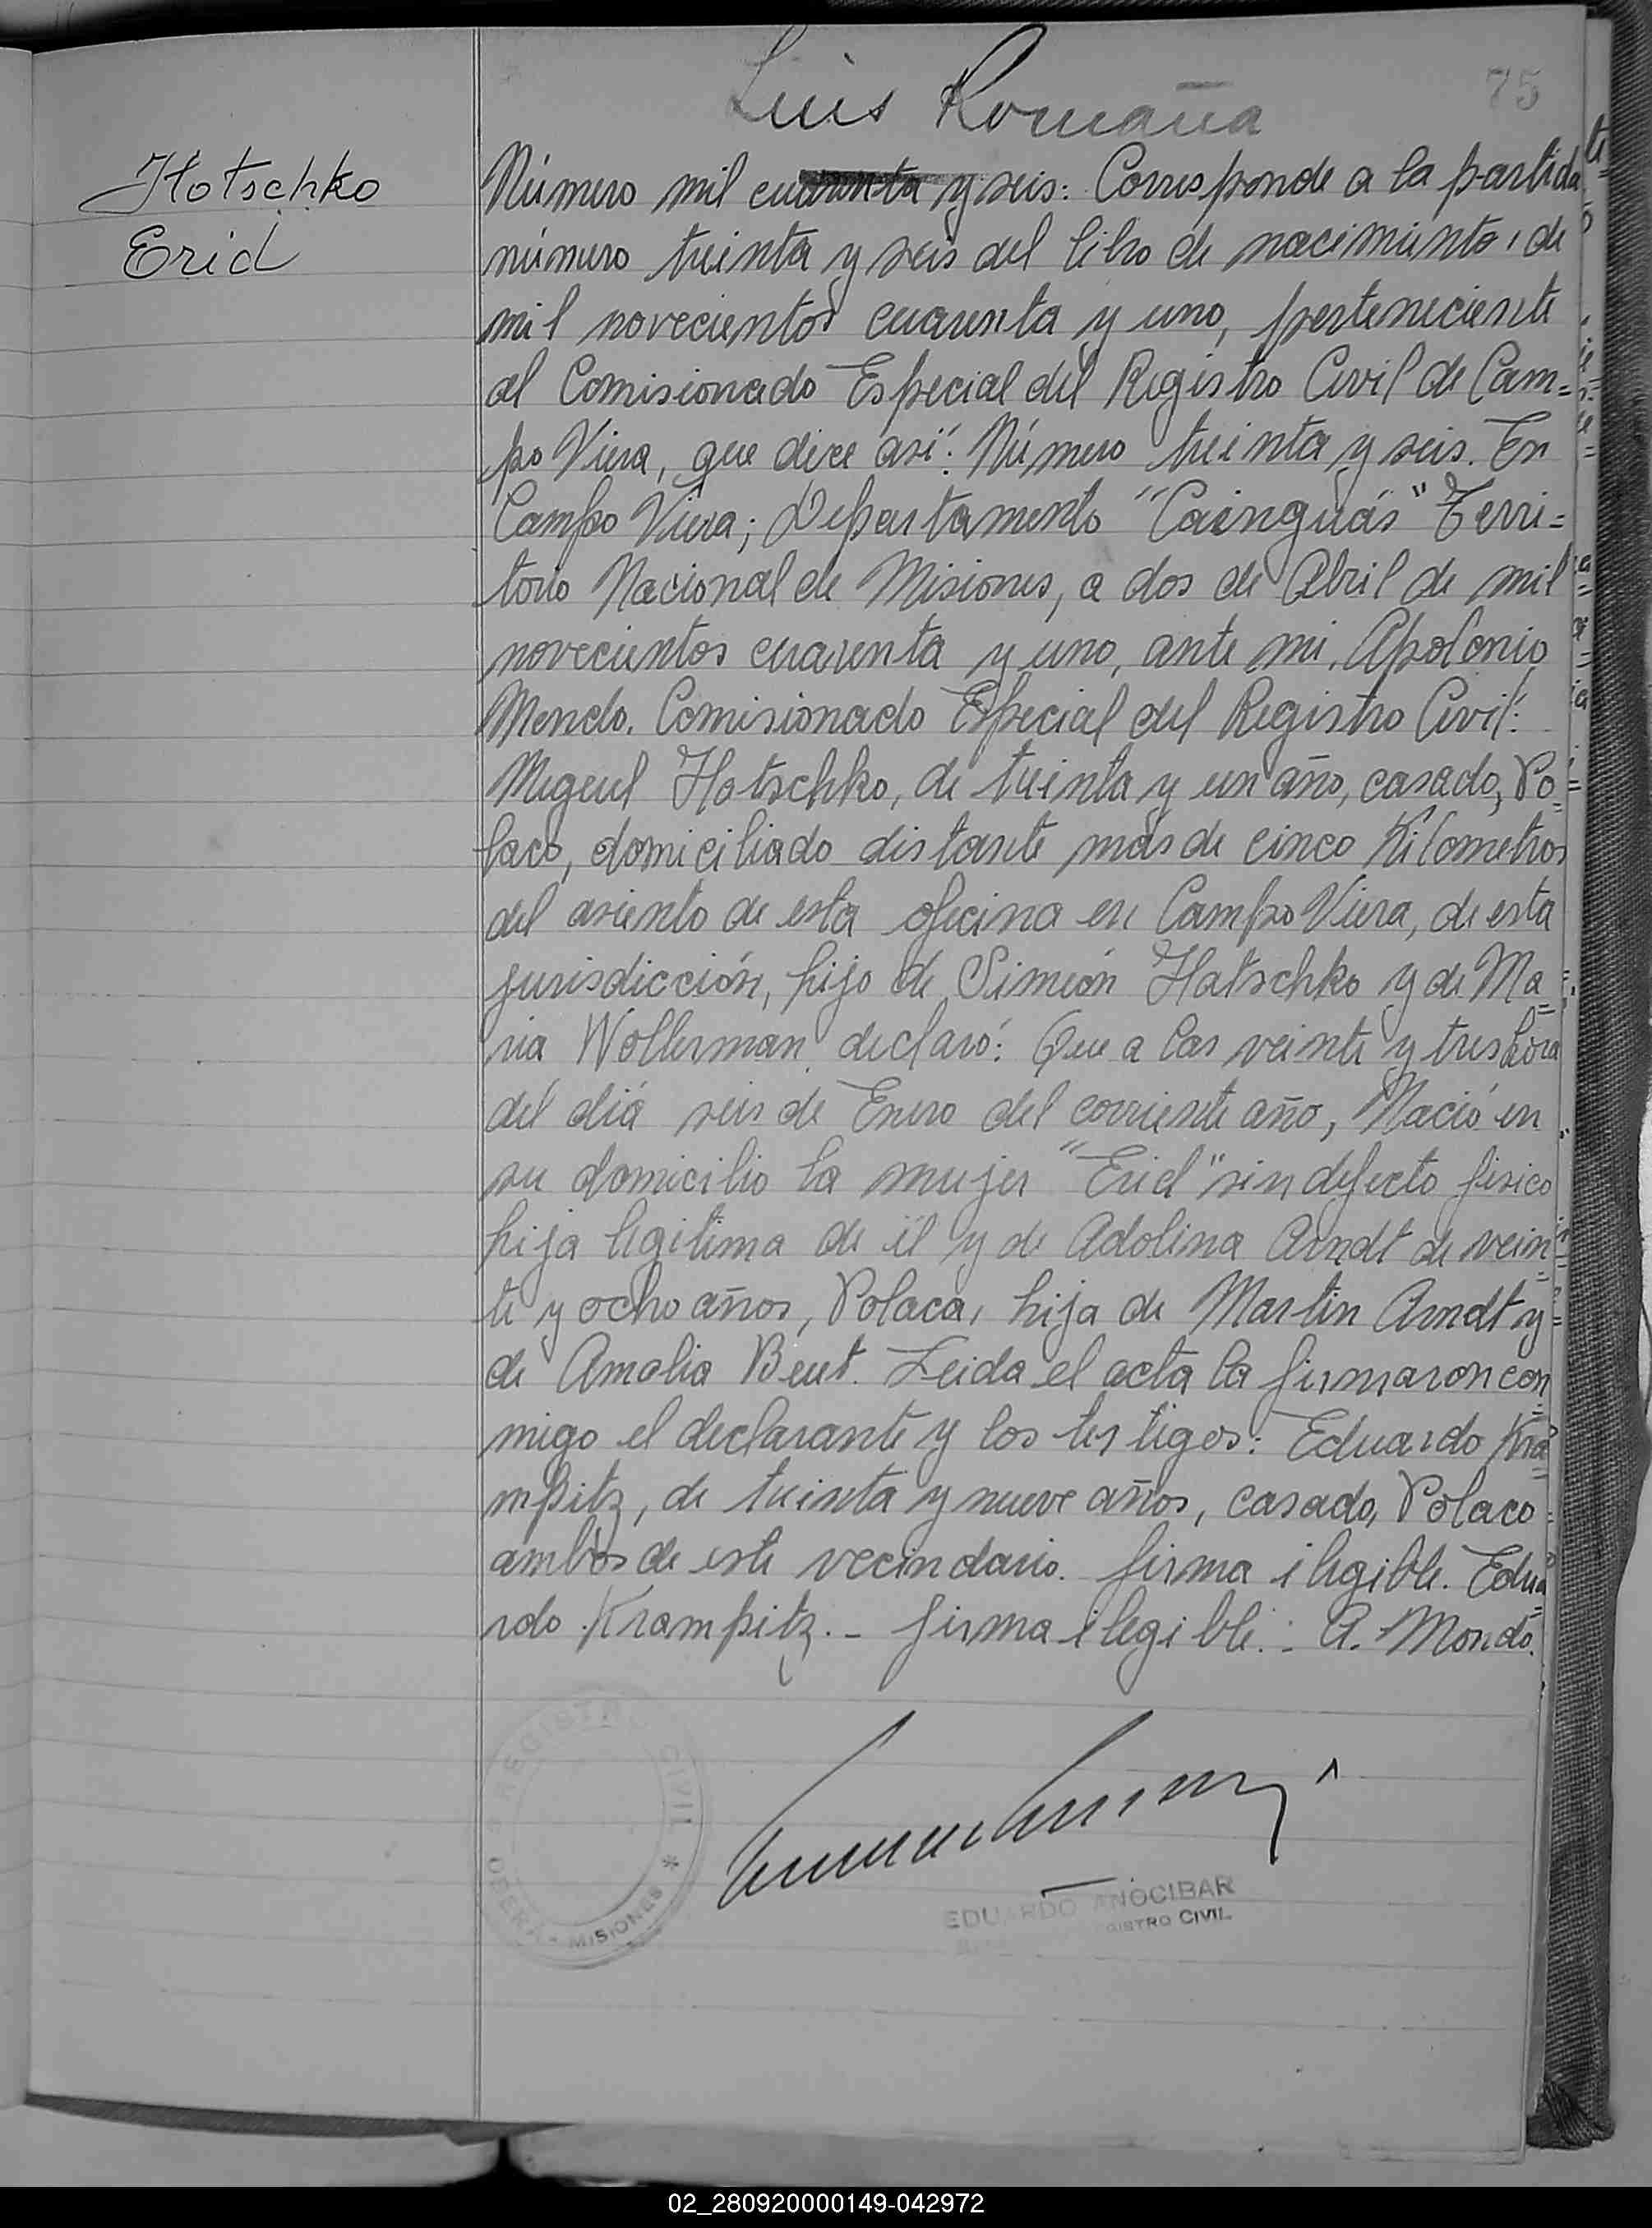 Luis Romaña
75
Hotschko
Erid
Número mil cuarenta y seis: Corresponde a la partida
número treinta y seis del libro de nacimiento, de
mil novecientos cuarenta y uno, perteneciente
al Comisionado Especial del Registro Civil de Cam=
po Viera, que dice así: Número treinta y seis. En
Campo Viera; Departamento "Cainguás" Terri=
torio Nacional de Misiones, a dos de Abril de mil
novecientos cuarenta y uno, ante mi, Apolonio
Mendo. Comisionado Especial del Registro Civil:
Migeul Hotschko, de treinta y un año, casado, Po=
laco, domiciliado distante más de cinco Kilometros
del asiento de esta oficina en Campo Viera, de esta
jurisdicción, hijo de Simeón Hatschko y de Ma=
ria Wollerman declaró: Que a las veinte y tres hora
del diá seis de Enero del corriente año, Nació en
su domicilio la mujer "Erid" sin defecto fisico
hija legitima de él y de Adolina Arndt de vein=
te y ocho años, Polaca, hija de Martin Arndt y
de Amalia Beut. Leida el acta la firmaron con
migo el declarante y los testigos: Eduardo Kra=
mpitz, de treinta y nueve años, casado, Polaco
ambos de este vecindario. firma ilegible. Edua=
rdo Krampitz. - firma ilegible. - A. Mondo.
REGISTRO CIVIL * OBERA - MISIONES
EDUARDO ANOCIBAR
REGISTRO CIVIL
02_280920000149-042972